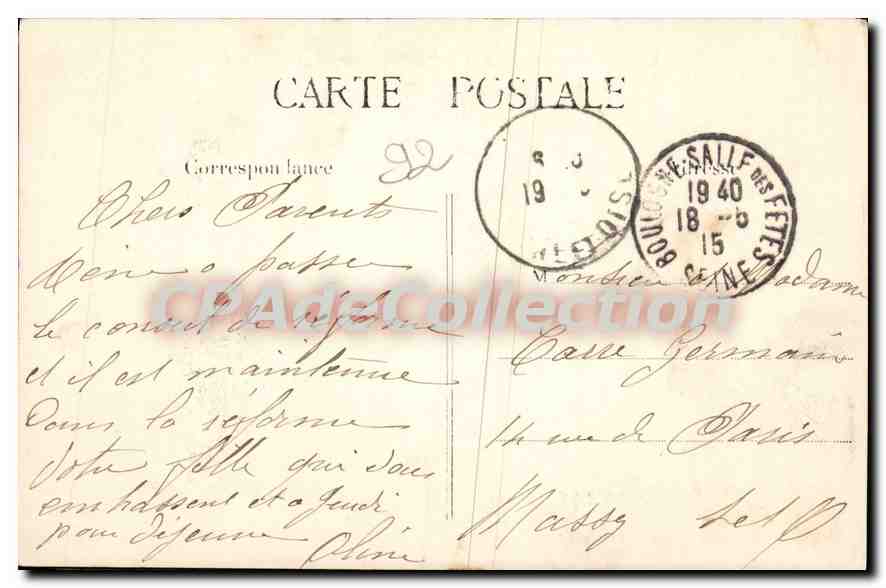 CARTE POSTALE
Correspondance
92
Adresse
BOULOGNE-SALLE DES FETES
19 40
18 -5
15
SEINE
19
Chers Parents
a passer
le conseil de réforme
et il est maintenue
Dans la réforme
Votre fille qui vous
embrassent et a jeudi
pour déjeuner Oline
M
Monsieur & Madame
Carre Germain
14 rue de Paris
Massy S et O
CPAdsCollection